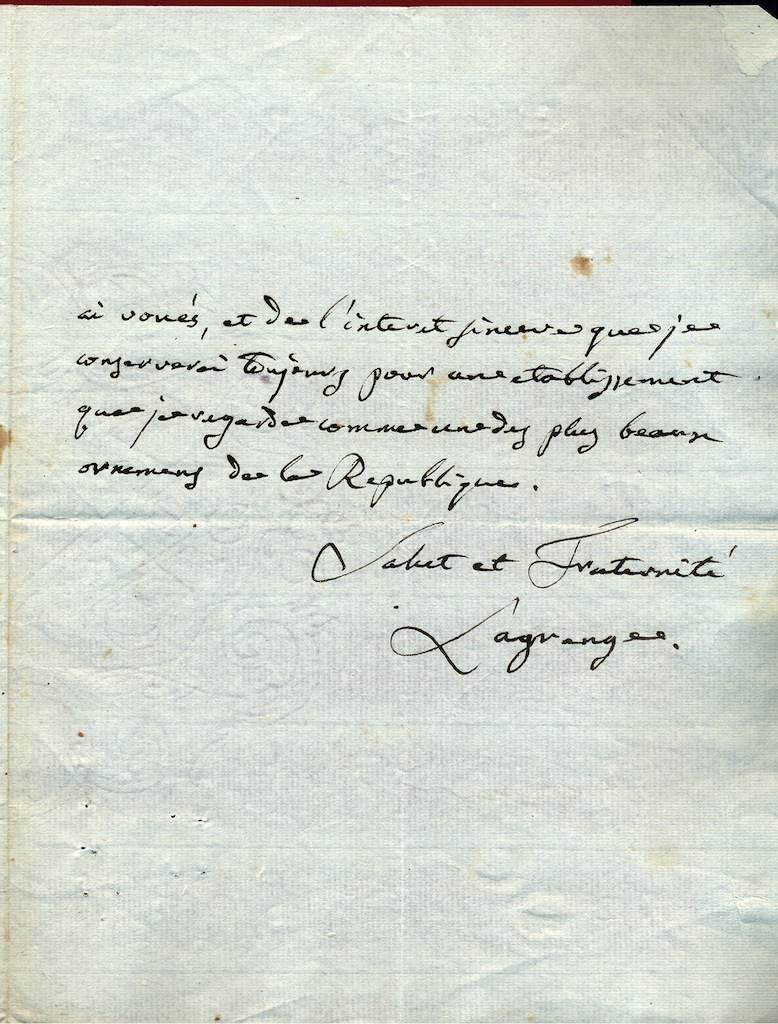 ai voués, et de l'interet sincere que je
conserverai toujours pour un etablissement
que je regarde comme un des plus beaux
ornemens de la Republique.
Salut et Fraternité
Lagrange.